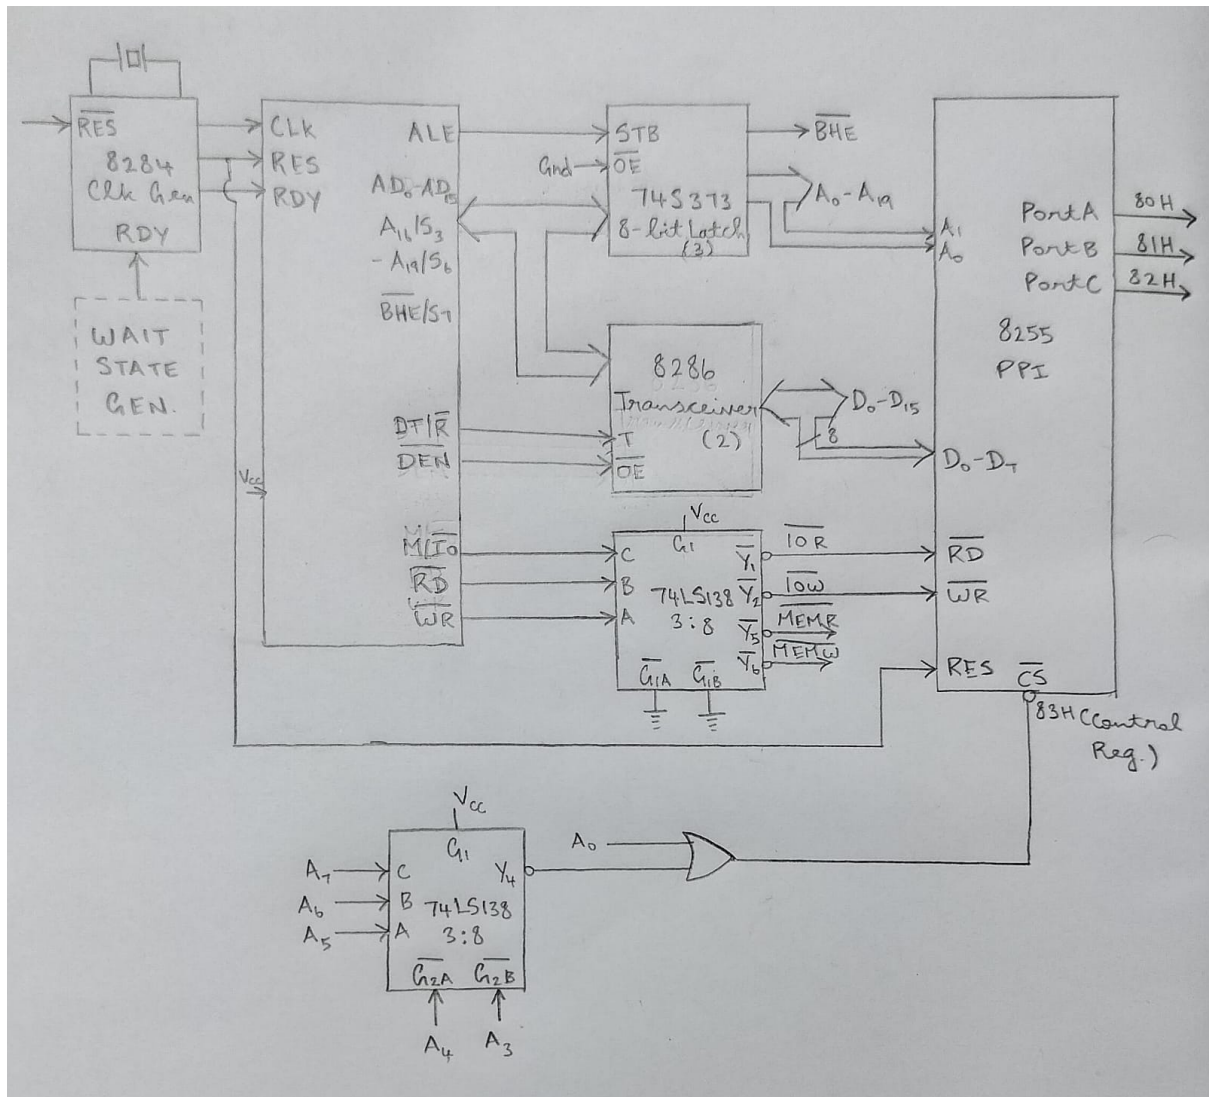 R̅E̅S̅
8284
Clk Gen
RDY
WAIT
STATE
GEN.
CLK
RES
RDY
Vcc
ALE
AD₀-AD₁₅
A₁₆/S₃
- A₁₉/S₆
B̅H̅E̅/S₇
DT/R̅
D̅E̅N̅
M/I̅o̅
R̅D̅
W̅R̅
STB
Gnd
O̅E̅
74S373
8-bit Latch
(3)
B̅H̅E̅
A₀-A₁₉
8286
Transceiver
(2)
T
O̅E̅
D₀-D₁₅
8
Vcc
G₁
C
B
A
74LS138
3:8
Y̅₁
Y̅₂
Y̅₅
Y̅₆
G̅₁A̅
G̅₁B̅
I̅O̅R̅
I̅O̅W̅
M̅E̅M̅R̅
M̅E̅M̅W̅
A₁
A₀
Port A
Port B
Port C
80H
81H
82H
8255
PPI
D₀-D₇
R̅D̅
W̅R̅
RES
C̅S̅
83H (Control
Reg.)
Vcc
G₁
A₇
A₆
A₅
C
B
A
Y₄
74LS138
3:8
G̅₂A̅
G̅₂B̅
A₄
A₃
A₀